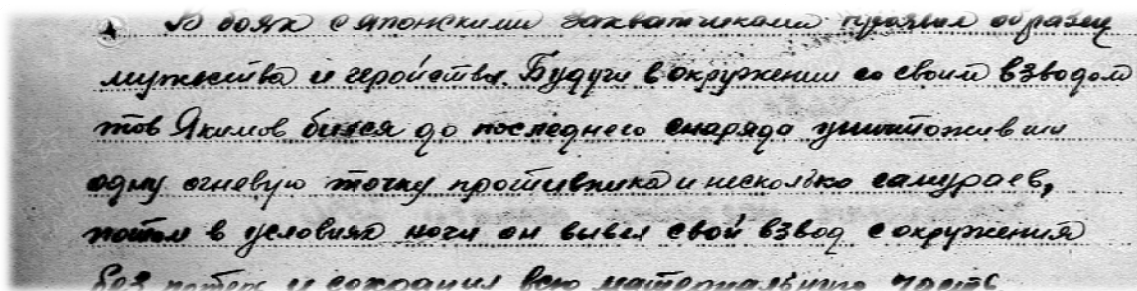 В боях с японскими захватчиками проявил образец
мужества и геройства. Будучи в окружении со своим взводом
тов Якимов бился до последнего снаряда уничтоживши
одну огневую точку противника и несколько самураев,
потом в условиях ночи он вывел свой взвод с окружения
без потерь и сохранил всю материальную часть